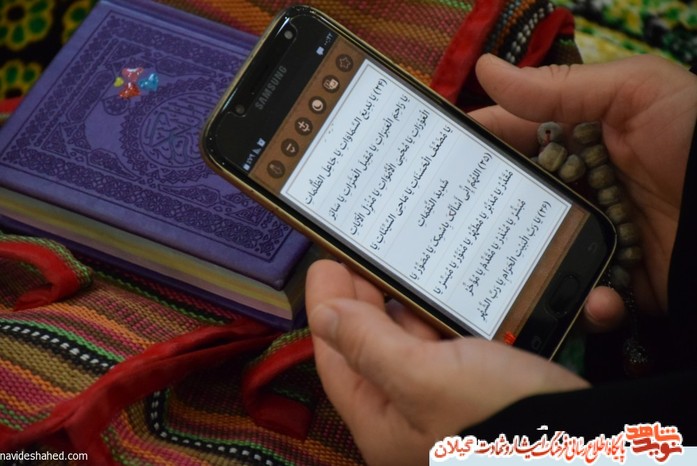 SAMSUNG
(۲۴) یا بَدیعَ السَّماواتِ یا جاعِلَ الظُّلُماتِ
یا راحِمَ الْعَبَراتِ یا مُقیلَ الْعَثَراتِ یا ساتِرَ
الْعَوْراتِ یا مُحْیِیَ الْأَمْواتِ یا مُنْزِلَ الْآیاتِ
یا مُضَعِّفَ الْحَسَناتِ یا ماحِیَ السَّیِّئاتِ یا
شَدیدَ النَّقِماتِ
(۲۵) اللّهُمَّ اِنّی اَسْألُکَ بِاسْمِکَ یا مُصَوِّرُ یا
مُقَدِّرُ یا مُدَبِّرُ یا مُطَهِّرُ یا مُنَوِّرُ یا مُیَسِّرُ یا
مُبَشِّرُ یا مُنْذِرُ یا مُقَدِّمُ یا مُؤَخِّرُ
(۲۶) یا رَبَّ الْبَیْتِ الْحَرامِ یا رَبَّ الشَّهْرِ
navideshahed.com
نوید شاهد پایگاه اطلاع رسانی فرهنگ ایثار و شهادت گیلان